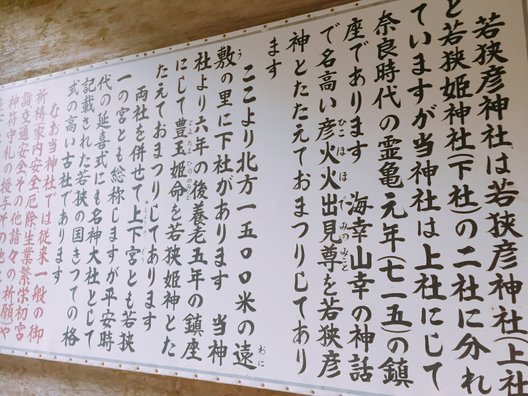 若狭彦神社は若狭彦神社(上社
と若狭姫神社(下社)の二社に分れ
ていますが当神社は上社にして
奈良時代の霊亀元年(七一五)の鎮
座であります 海幸山幸の神話
で名高い彦火火出見尊を若狭彦
神とたたえておまつりしてあり
ます
ここより北方一五〇〇米の遠
敷の里に下社があります 当神
社より六年の後養老五年の鎮座
にして豊玉姫命を若狭姫神とた
たえておまつりしてあります
両社を併せて上下宮とも若狭
一の宮とも総称しますが平安時
代の延喜式にも名神大社として
記載された若狭の国きっての格
式の高い古社であります
なお当神社では従来一般の御
祈祷家内安全厄除生業繁栄初宮
詣交通安全その他諸々の祈願や
神符守札の授与その他